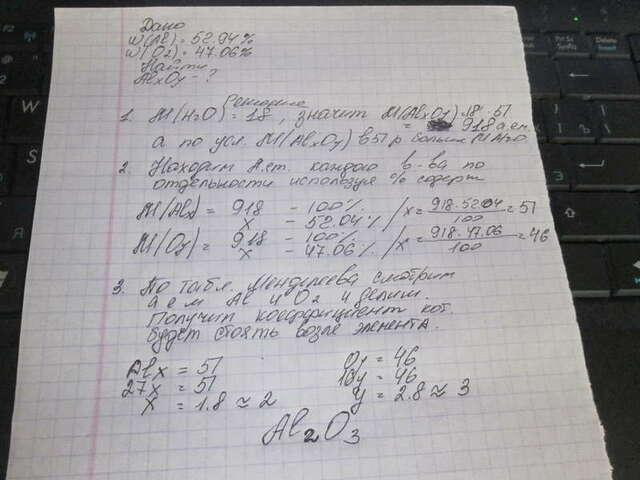 Дано
W(Al) = 52.94%
W(O2) = 47.06%
Найти
AlxOy - ?
Решение
1. M(H2O) = 18, значит M(AlxOy) 18·51
= 918 а.ем
а по усл. M(AlxOy) в 51 р больше M H2O
2. Находим А.ем. каждого в-ва по
отдельности используя % содерж
M(Alx) = 918 - 100% / x = 918·52.04 / 100 = 51
x - 52.04%
M(Oy) = 918 - 100% / x = 918·47.06 / 100 = 46
x - 47.06%
3. По табл. Менделеева смотрим
а е м Al и O2 и делим.
Получим коэффициент кот.
будет стоять возле элемента.
Alx = 51
27x = 51
x = 1.8 ≈ 2
Oy = 46
16y = 46
y = 2.8 ≈ 3
Al2O3